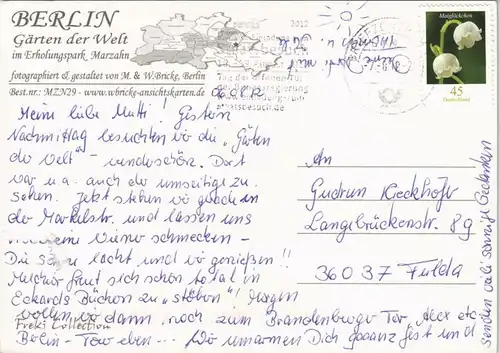 BERLIN
Gärten der Welt
im Erholungspark Marzahn
fotographiert & gestaltet von M. & W.Bricke, Berlin
Best.nr.: MZN29 - www.wbricke-ansichtskarten.de
2012
Tag der
Maiglöckchen
45
Deutschland
Meine liebe Mutti! Gestern
Nachmittag besuchten wir die "Gärten
der Welt" - wunderschön. Dort
war u. a. auch das umseitige zu
sehen. Jetzt stehen wir gerade in
der Markelstr. und lassen uns
Wiener schmecken -
Die lacht und wir genießen!!
freut sich schon total in
Eckards Büchern zu "stöbern"! Morgen
wollen wir dann noch zum Brandenburger Tor, Alex etc.
Freks Collection
Berlin - Tour eben... Wir umarmen Dich gaaanz fest und
senden viele sonnige Gedanken
An
Gudrun Kieckhöfv
Langebrückenstr. 89
36037 Fulda